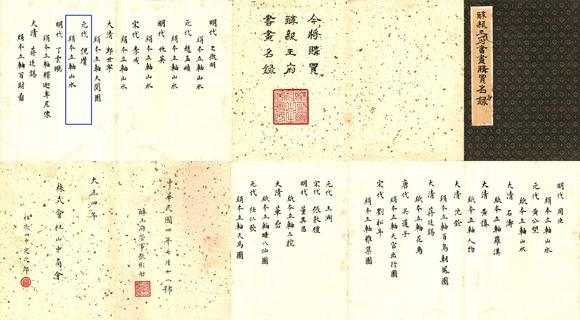 醇親王府書畫購買名錄
今將購買
醇親王府
書畫名錄
明代 文徵明
絹本立軸山水
元代 趙孟頫
絹本立軸山水
明代 仇英
絹本立軸山水
宋代 李成
絹本立軸山水
大清 郎世寧
絹本立軸天閑圖
元代 倪瓚
絹本立軸山水
明代 丁雲鵬
絹本立軸釋迦牟尼像
大清 蔣廷錫
絹本立軸百財圖
明代 周臣
絹本立軸山水
元代 黃公望
紙本立軸山水
大清 石濤
紙本立軸羅漢
大清 黃慎
紙本立軸人物
大清 沈銓
絹本立軸百鳥朝鳳圖
大清 蔣廷錫
紙本立軸花鳥
唐代 吳道子
絹本立軸天官出行圖
宋代 劉松年
絹本立軸雅集圖
元代 王淵
宋代 張敦禮
明代 董其昌
紙本立軸三挖
大清 華喦
紙本立軸睡八仙圖
元代 任仁發
絹本立軸天馬圖
中華民國四年七月十號
醇王府管事張彬舫
大正四年
株式會社山中商會
社長山中定次郎